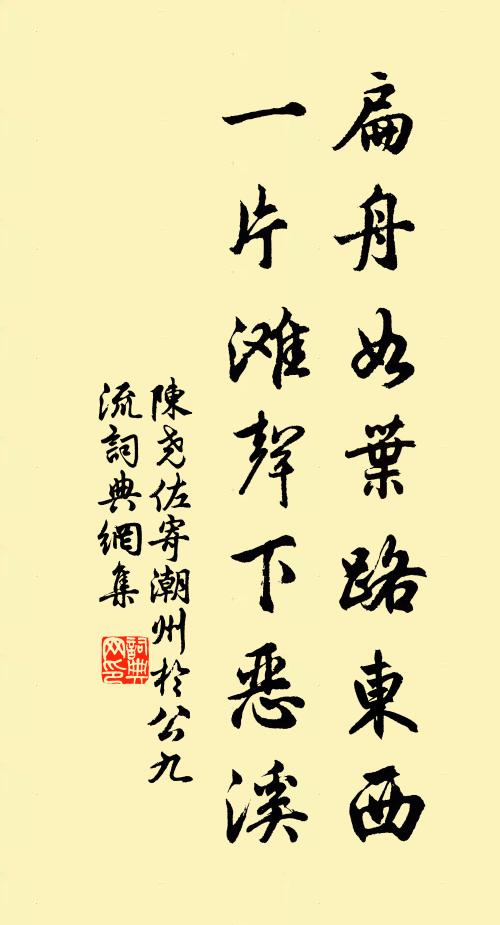 扁舟如葉路東西
一片滩聲下惡溪
陳尧佐寄潮州於公九
流詞典網集
詞典网印